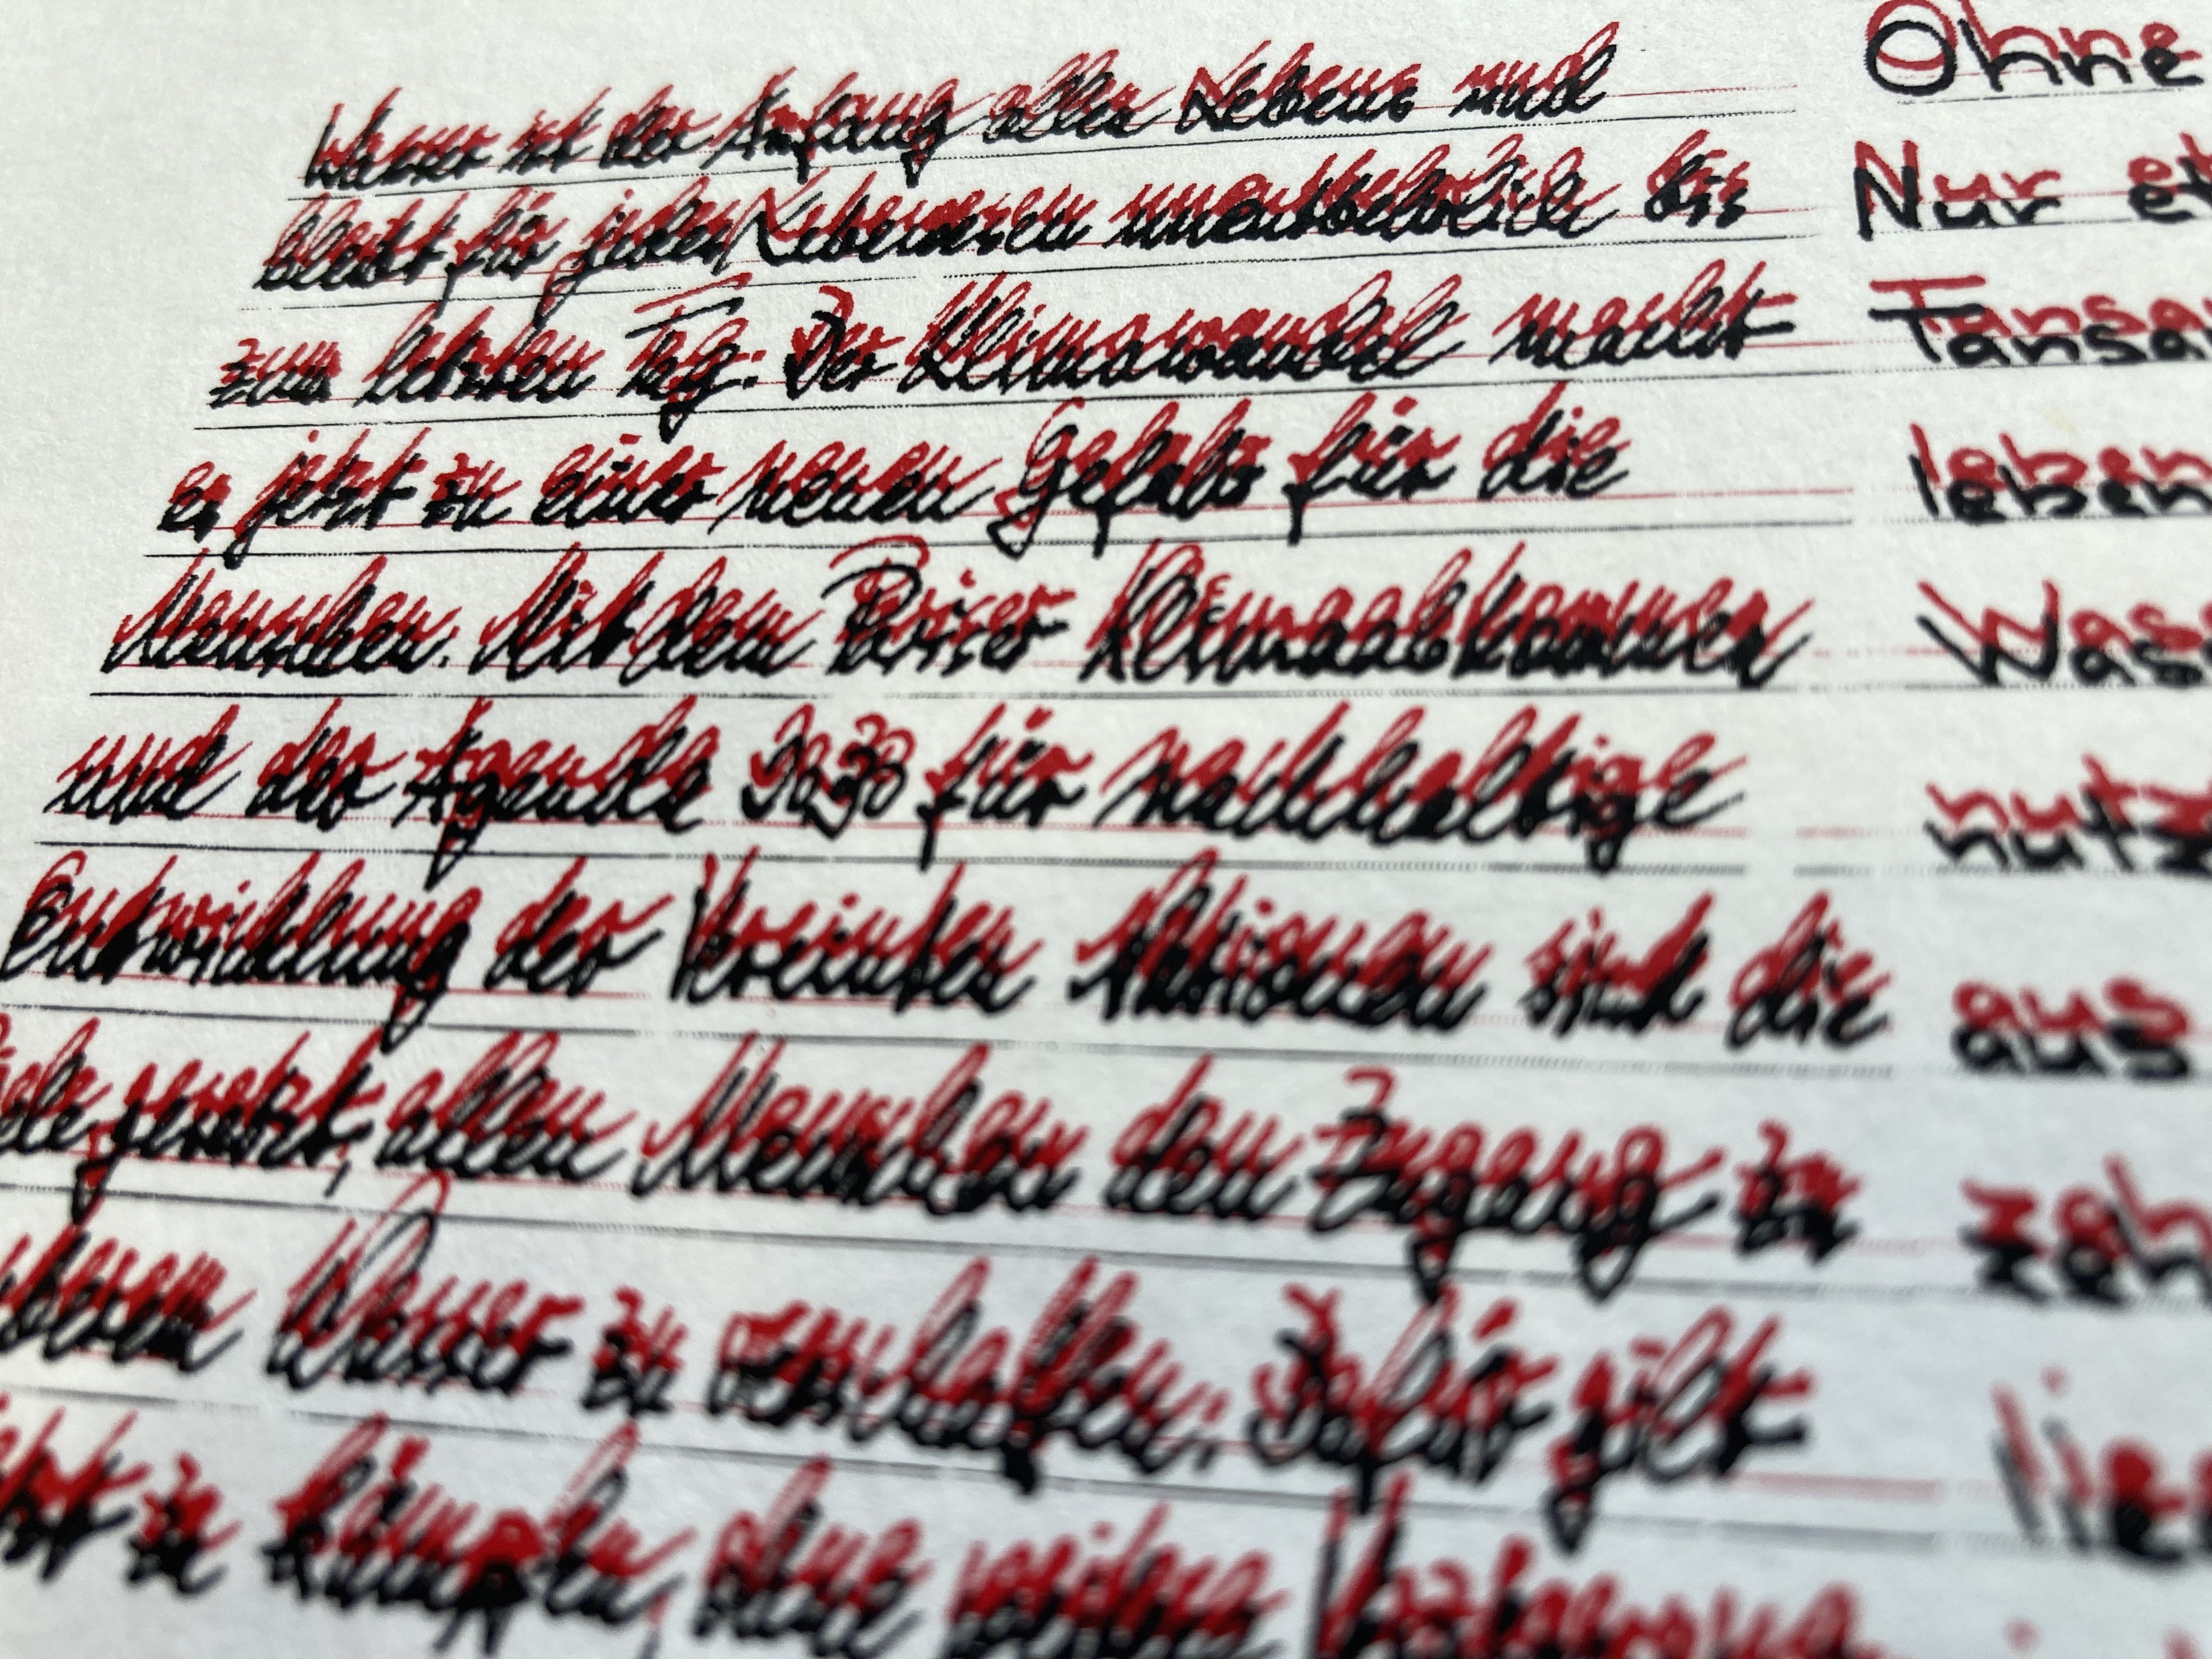 Wasser ist der Anfang allen Lebens und
bleibt für jedes Lebewesen unentbehrlich bis
zum letzten Tag. Der Klimawandel macht
es jetzt zu einer neuen Gefahr für die
Menschen. Mit dem Pariser Klimaabkommen
und der Agenda 2030 für nachhaltige
Entwicklung der Vereinten Nationen sind die
gesetzt, allen Menschen den Zugang zu
Wasser zu verschaffen. Dafür gilt
zu kämpfen, ohne weitere
Ohne
Nur
Tansa
leben
Wass
nutz
aus